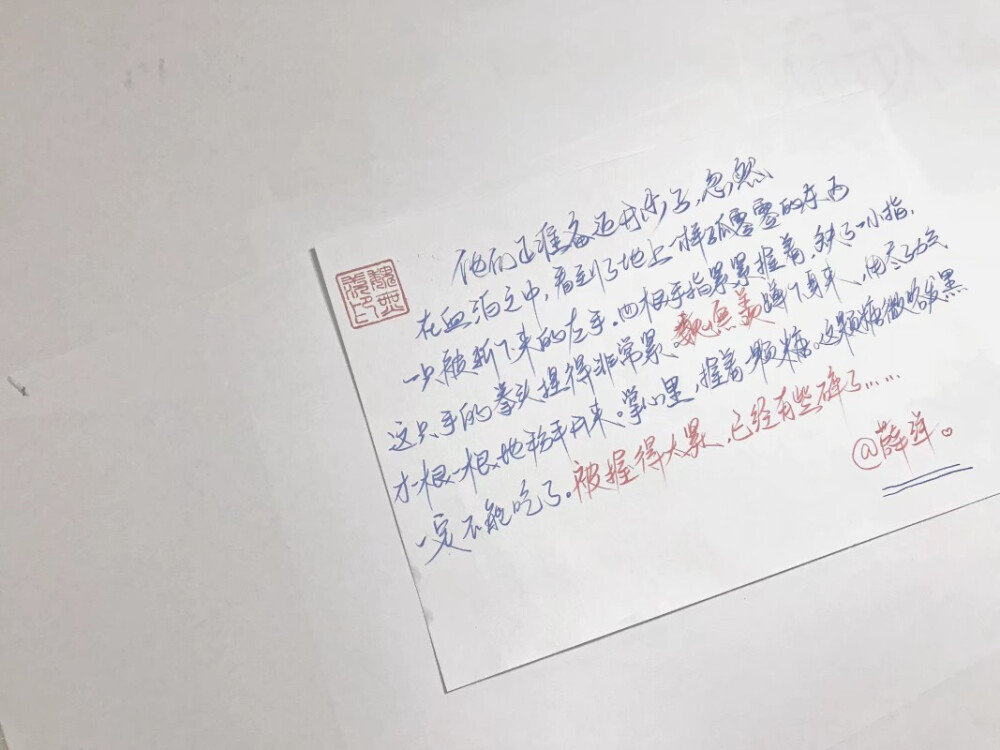 他们正准备迈开步子,忽然
在血泊之中,看到了地上一样孤零零的东西
一只被斩下来的左手。四根手指紧紧握着,缺了一小指.
这只手的拳头捏得非常紧。魏無羡蹲下身来,用尽了力气
才一根一根地掰开来。掌心里,握着一颗糖。这颗糖微微发黑
一定不能吃了。被握得太紧,已经有些碎了……
@薛洋。
魏無羨印